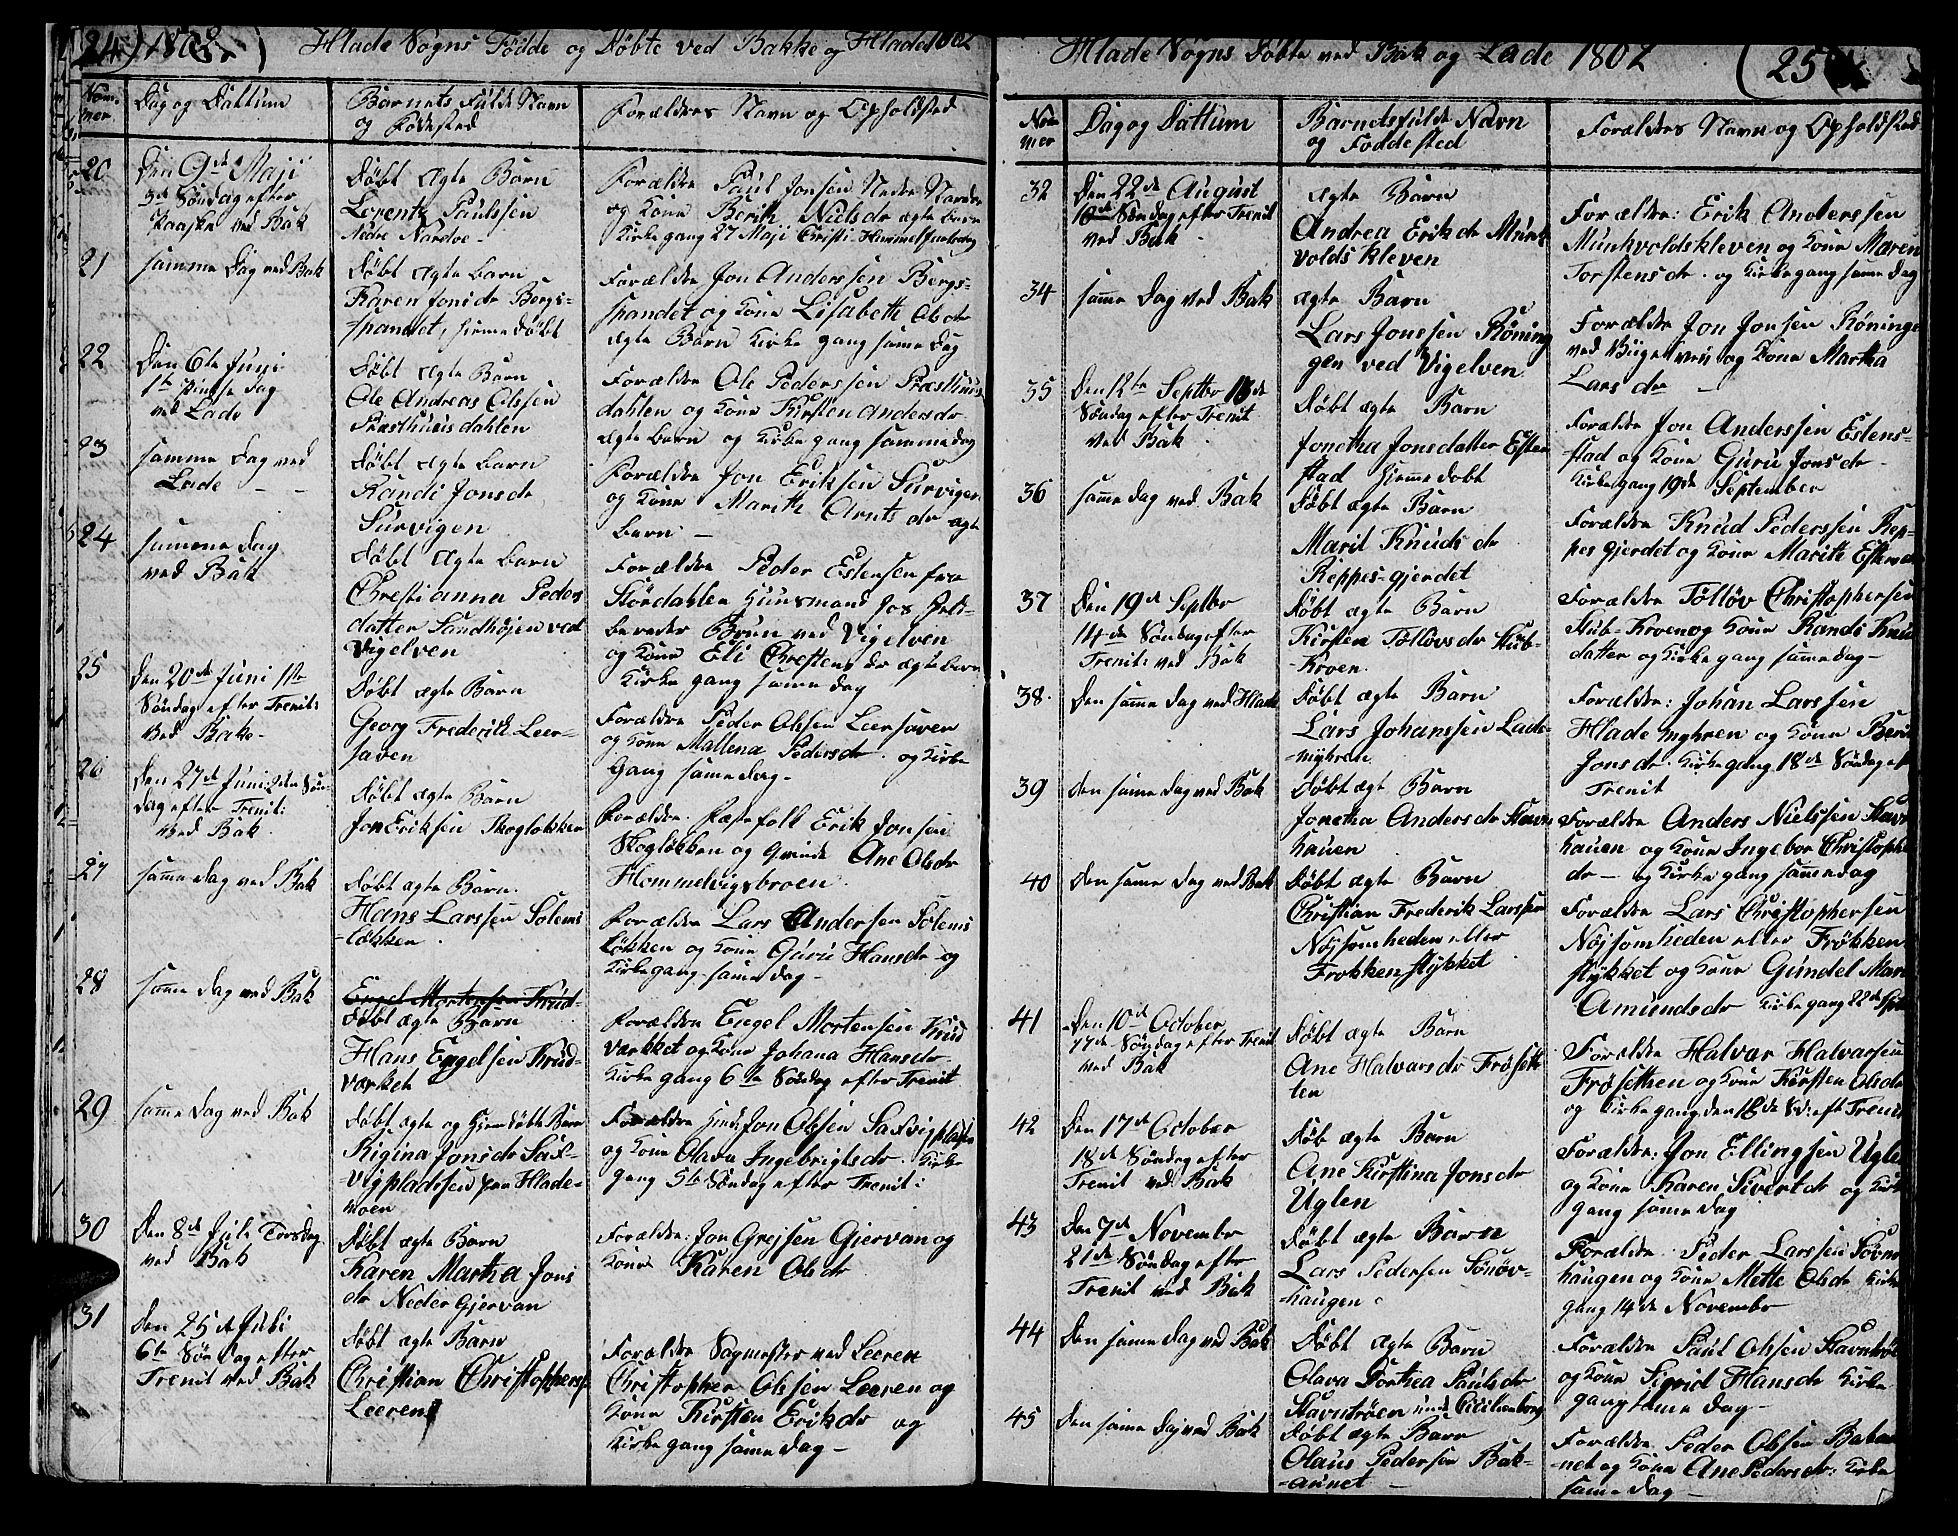 24) 1802. ) Hlade Sogns Fødde og Døbte ved Bakke og Hlade 1802
Nom-
mer.
Dag og Dattum
Barnets Fulde Navn
og Fødested
Forældres Navn og Opholdsted
20
Den 9de Maji
3de Søndag efter
Paaske ved Bak
Døbt ægte Barn
Lorentz Paulssen
Nedre Nardoe
Forældre Paul Jonsen Nedre Nardoe
og Kone Berith Nielsdr ægte barn
Kirkegang 27 Maji Christi Himmelfartsdag
21
samme Dag ved Bak
Døbt ægte barn
Karen Jonsdr Bergs-
spandet, hiemedøbt
Forældre Jon Anderssen Bergs-
spandet og Kone Lisabeth Olsdr
ægte Barn Kirkegang samme dag
22
Den 6te Juni
1te pindse dag
ved Lade
Døbt ægte Barn
Ole Andreas Olssen
Præsthuusdahlen
Forældre Ole Pederssen Præsthuus
dahlen og Kone Kirsten Andersdr
ægte barn og Kirkegang samme dag
23
samme Dag ved
Lade
Døbt ægte barn
Randi Jonsdr
Survigen
Forældre Jon Eriksen Survigen
og Kone Marith Arntsdr ægte
barn
24
samme dag
ved Bak
Døbt ægte barn
Chrestianna Peders
datter Sandhøjen ved
Vigelven
Forældre Peder Estensen fra
Størdahlen Huusmand hos
bereder Brun ved Vigelven
og Kone Eli Chrestensdr ægte barn
Kirkegang samme dag
25
Den 20de Juni 1te
Søndag efter Trenit:
ved Bakke
Døbt ægte Barn
Georg Frederik Leer-
saven
Forældre Peder Olssen Leersaven
og Kone Mallena Pedersdr og Kirke
Gang samme dag
26
Den 27de Juni 2den Søn
dag efter Trenit:
ved Bak.
Døbt ægte Barn
Jon Eriksen Skogløkken
Forældre Erik Jonsen
Skogløkken og Qvinde Ane Olsdr
Hommelvigsbroen
27
samme dag ved Bak
Døbt ægte Barn.
Hans Larssen Solems
-løkken.
Forældre Lars Andersen Solems
Løkken og Kone Guru Hansdr og
Kirkegang samme dag
28
samme dag ved Bak
Engel Mortensen Krud-
Døbt ægte Barn
Hans Engelsen Krud-
værket
Forældre Engel Mortensen Krud
værket og Kone Johana Hansdr
Kirkegang 6te Søndag efter Trenit
29
samme dag ved Bak
Døbt ægte og Hjemdøbte Barn
Rigina Jonsdr Sax-
vigpladsen paa Hlade-
moen
Forældre Jon Olssen Saxvigpladsen
og Kone Olava Ingebrigtsdr Kirke
gang 5te Søndag efter Trenit:
30
Den 8de Juli Torsdag
ved Bak
Døbt ægte Barn
Karen Martha Jons
dr Neder Gjervan
Forældre: Jon Grejsen Gjervan og
Kone Karen Olsdr
31
Den 25de Juli
6te Søndag efter
Trenit ved Bak
Døbt ægte Barn
Christian Christophersen
Leeren
Forældre Sagmester ved Leeren
Christopher Olssen Leeren og
Kone Kirsten Eriksdr og
Kirkegang samme dag
Hlade Sogns Døbte ved Bak og Lade 1802 ( 25
Nom
mer
Dag og Dattum
Barnets fulde Navn
og Føddested
Forældres Navn og Opholdsted
32
Den 22de August
10de Søndag efter Trenit
ved Bak
ægte Barn
Andrea Eriksdr Munk
volds kleven
Forældre: Erik Anderssen
Munkvoldskleven og Kone Maren
Torstensdr. og Kirkegang samme dag
34
samme Dag ved Bak
ægte Barn
Lars Jonssen Røning
gen ved Vigelven
Forældre Jon Jonsen Røninge
ved og Kone Martha
Larsdr
35
Den 12te Septbr 13de
Søndag efter Trenit
ved Bak
Døbt ægte Barn
Jonetha Jonsdatter Esten
stad Hjemmedøbt
Forældre Jon Anderssen Estens-
stad og Kone Guru Jonsdr
Kirkegang 19de September
36
samme dag ved Bak
Døbt ægte Barn
Marit Knudsdr
Reppes-gjerdet
Forældre Knud Pederssen Rep-
pesgjerdet og Kone Marith
37
Den 19de Septbr
14de Søndag efter
Trenit: ved Bak
Døbt ægte Barn
Kirsten Tølløvsdr Stub-
-kroen
Forældre Tølløv Christophersen
Stub-Kroen og Kone Randi Knud
datter og Kirkegang samme dag
38.
Den samme dag ved Hlade
Døbt ægte Barn
Lars Johanssen Lade-
-myhren
Forældre: Johan Larssen
Hlademyhren og Kone Berit
Jonsdr. Kirkegang 18de Søndag e
Trenit
39
den samme dag ved Bak
Døbt ægte Barn
Jonetha Andersdr Stavn
hauen
Forældre Anders Nielssen Stavn
hauen og Kone Ingebor Christophe
dr og Kirkegang samme dag
40
den samme dag ved Bak
Døbt ægte Barn
Christian Frederik Larssen
Nøjsomheden eller
Frøkkenstykket
Forældre Lars Christophersen
Nøjsomheden eller Frøkken-
stykket og Kone Gundel Mari
Amundsdr Kirkegang 22de
41
den 10de October
17de Søndag efter Trenit
ved Bak
Døbt ægte Barn
Ane Halvarsdr Frøseth
ten
Forældre Halvar Halvarsen
Frøsethen og Kone Kirsten Olsdr
og Kirkegang den 18de Sd: eft Trenit
42
Den 17de October
18de Søndag efter
Trenit ved Bak
Døb ægte Barn
Ane Kirstina Jonsdr
Uglen
Forældre: Jon Ellingsen Uglen
og Kone Karen Sivertdr og Kirke
gang samme dag
43
Den 7de November
21de Søndag efter
Trenit ved Bak
Døbt ægte Barn
Lars Pedersen Sønøv-
haugen
Forældre Peder Larssen
haugen og Kone Mette Olsdr Kirke
gang 14de November
44
Den samme dag ved Bak
Døbt ægte Barn
Olava Dorthea Paulsdr
Stavntrøen Ceciliaborg
Forældre Paul Olssen Stavntrøe
og Kone Sigrid Hansdr Kirke
gang samme dag
45
Den samme dag ved Bak
Døbt ægte Barn
Olaus Pedersen Bak-
-aunet
Forældre Peder Olssen Bakau
-net og Kone Ane Pedersdr: Kirke
samme dag